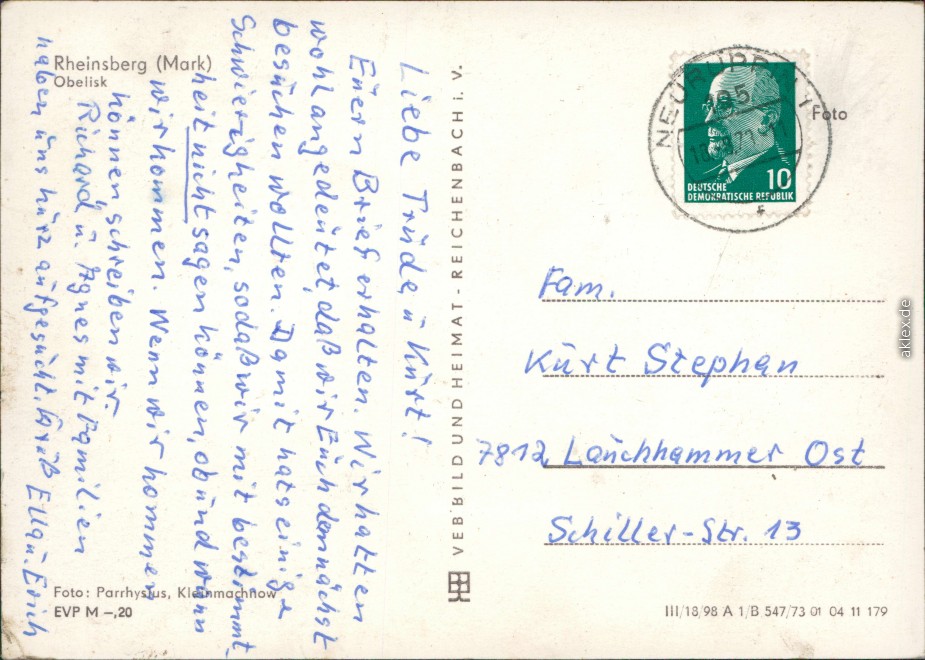 Rheinsberg (Mark)
Obelisk
Liebe Trude u Kurt!
Euern Brief erhalten. Wir hatten
wohl angedeutet, daß wir Euch demnächst
besuchen wollten. Damit hat's einige
Schwierigkeiten, sodaß wir mit bestimmt-
heit nicht sagen können, ob und wann
wir kommen. Wenn wir kommen
können, schreiben wir.
Richard u. Agnes mit Familien
haben uns kurz aufgesucht. Gruß Ella u. Erich
Foto: Parrhysius, Kleinmachnow
EVP M –,20
VEB BILD UND HEIMAT - REICHENBACH i. V.
NEURUPPIN 1
195
DEUTSCHE
DEMOKRATISCHE REPUBLIK
10
Foto
Fam.
Kurt Stephan
7812 Lauchhammer Ost
Schiller-Str. 13
III/18/98 A 1/B 547/73 01 04 11 179
aklex.de